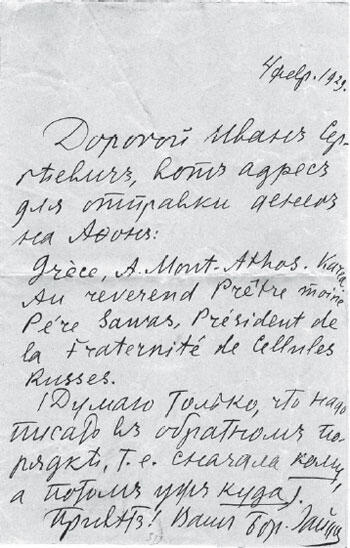 4 февр. 1929.
Дорогой Иванъ Сер-
гѣевичъ, вотъ адресъ
для отправки денегъ
на Афонъ:
Grèce, A. Mont-Athos. Karea.
Au reverend Prêtre moine
Père Sawas, Président de
la Fraternité de Cellules
Russes.
(Думаю только, что надо
писать въ обратномъ по-
рядкѣ, т.е. сначала кому,
а потомъ ужъ куда).
Привѣтъ! Вашъ Бор. Зайцевъ